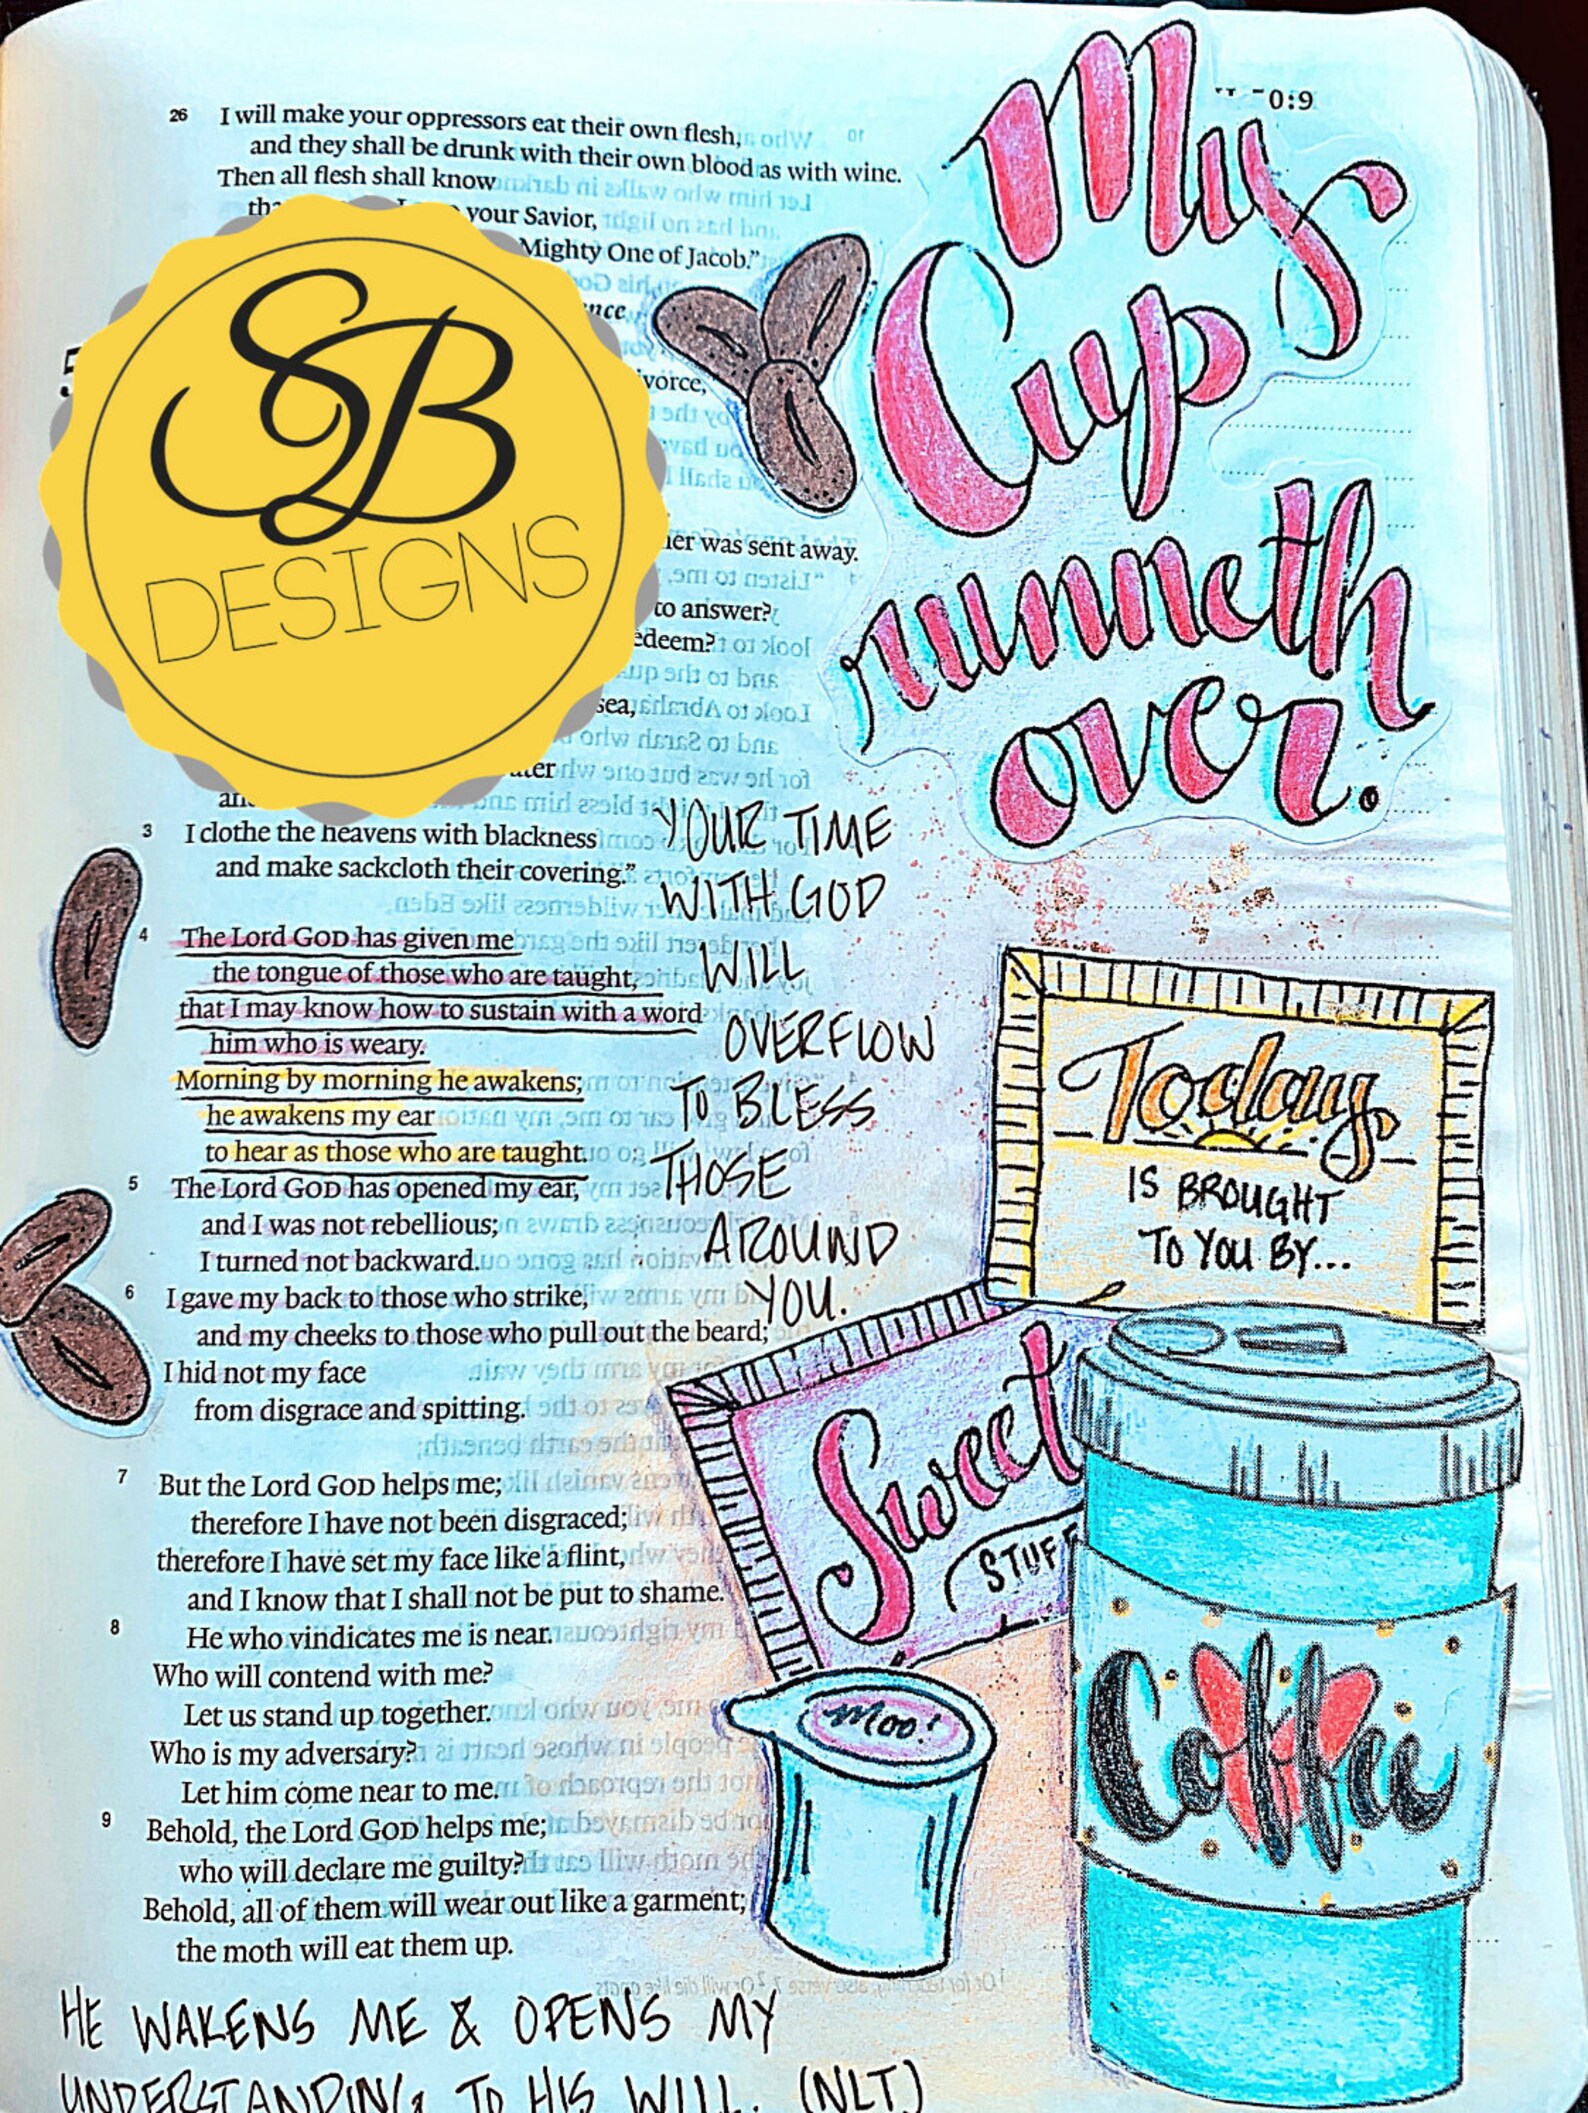 0:9
26 I will make your oppressors eat their own flesh,
and they shall be drunk with their own blood as with wine.
Then all flesh shall know
your Savior,
Mighty One of Jacob."
SB
DESIGNS
My
Cup
runneth
over.
ivorce,
was sent away.
to answer?
sea,
3 I clothe the heavens with blackness
and make sackcloth their covering."
4 The Lord GOD has given me
the tongue of those who are taught,
that I may know how to sustain with a word
him who is weary.
Morning by morning he awakens;
he awakens my ear
to hear as those who are taught.
5 The Lord GOD has opened my ear,
and I was not rebellious;
I turned not backward.
6 I gave my back to those who strike,
and my cheeks to those who pull out the beard;
I hid not my face
from disgrace and spitting.
7 But the Lord GOD helps me;
therefore I have not been disgraced;
therefore I have set my face like a flint,
and I know that I shall not be put to shame.
8 He who vindicates me is near.
Who will contend with me?
Let us stand up together.
Who is my adversary?
Let him come near to me.
9 Behold, the Lord GOD helps me;
who will declare me guilty?
Behold, all of them will wear out like a garment;
the moth will eat them up.
YOUR TIME
WITH GOD
WILL
OVERFLOW
TO BLESS
THOSE
AROUND
YOU.
Today
IS BROUGHT
TO YOU BY...
Sweet
STUFF
Moo!
Coffee
HE WAKENS ME & OPENS MY
UNDERSTANDING TO HIS WILL. (NLT)